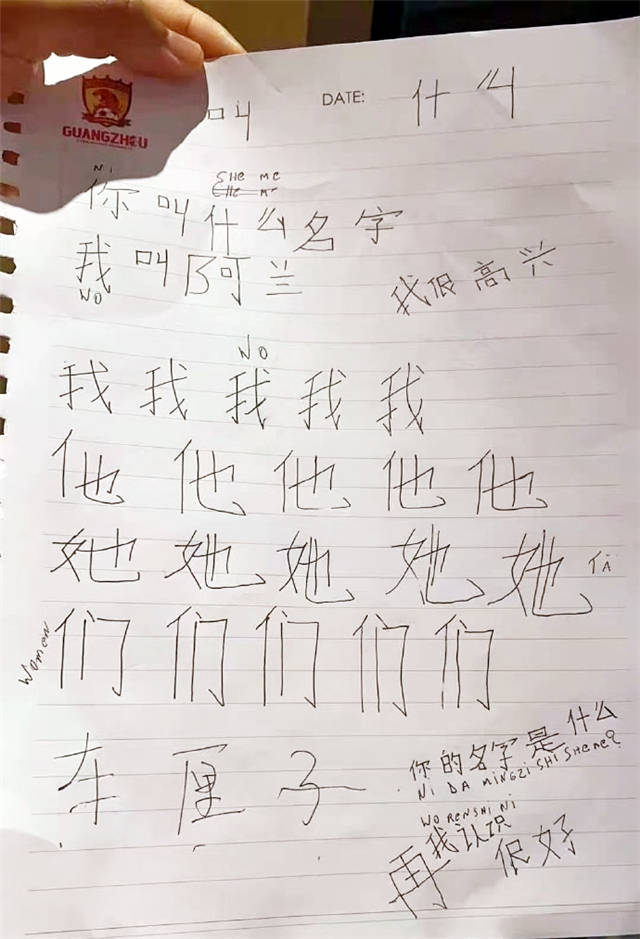 GUANGZHOU
叫 DATE: 什 叫
Ni SHE ME
你叫什么名字
我叫阿兰
WO
我很高兴
WO
我 我 我 我 我
他 他 他 他 他
她 她 她 她 她 TA
women 们 们 们 们 们
车 厘 子
你的名字是什么
Ni DA MINGZI SHI SHEME?
WO RENSHI Ni
我认识
再 很好